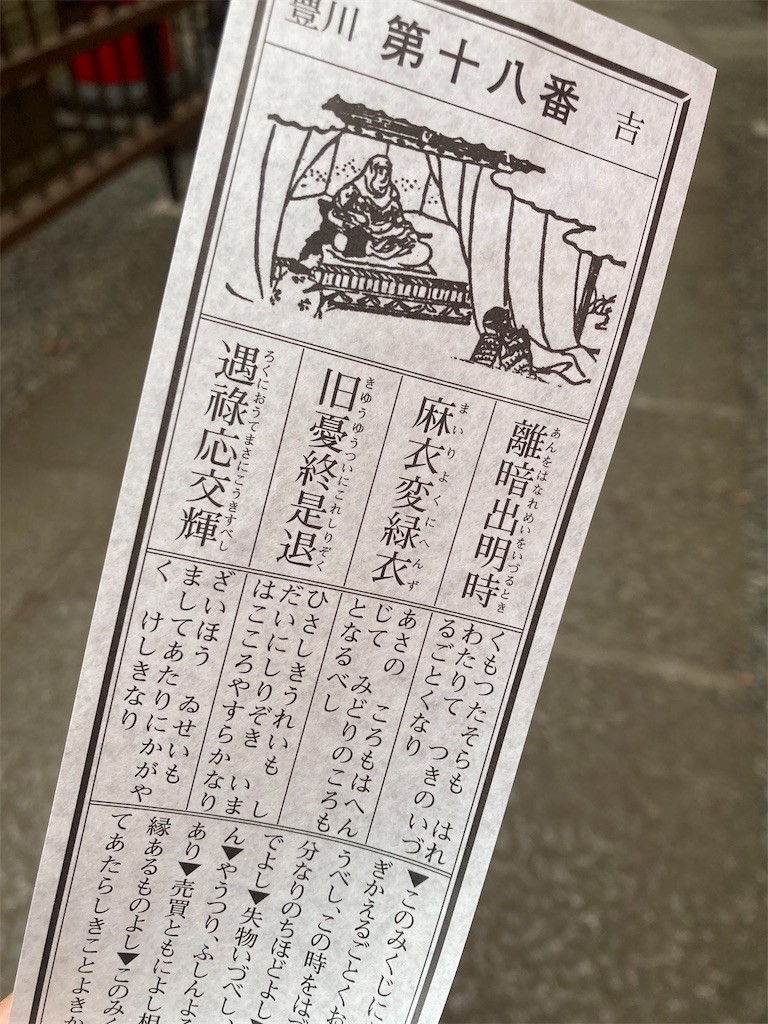 豊川 第十八番 吉
あんをはなれめいをいづるとき
離暗出明時
まいりよくにへんず
麻衣変緑衣
きゆうゆうついにこれしりぞく
旧憂終是退
ろくにおうてまさにこうきすべし
遇祿応交輝
くもつたそらも はれ
わたりて つきのいづ
るごとくなり
あさの ころもはへん
じて みどりのころも
となるべし
ひさしきうれいも し
だいにしりぞき いま
はこころやすらかなり
ざいほう ゐせいも
ましてあたりにかがや
く けしきなり
▼このみくじに
ぎかえるごとくお
うべし、この時をはづ
分なりのちほどよし▼
でよし▼失物いづべし、
ん▼やうつり、ふしんよろ
あり▼売買ともによし相
縁あるものよし▼このみく
てあたらしきことよきか